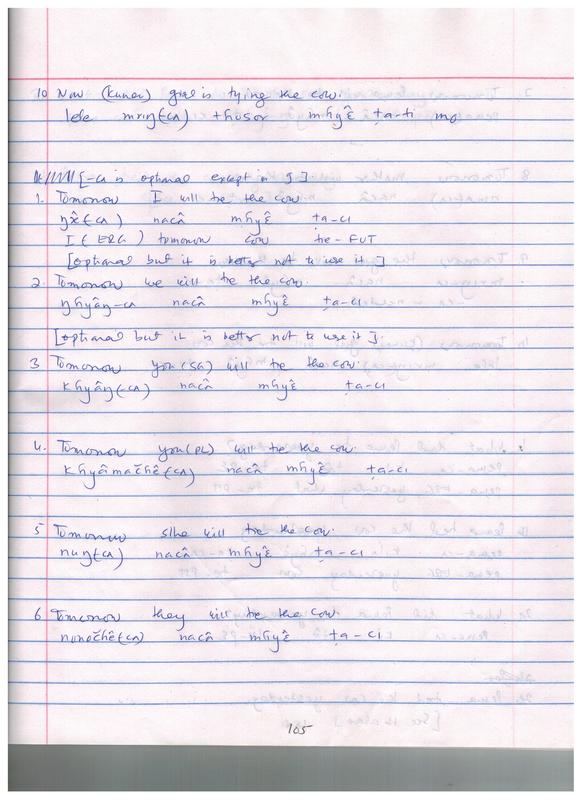 10 Now (kuner) girl is tying the cow.
lele mrıŋ(cʌ) thusor mɦyɛ̂ ṭa-ti mo
[-cʌ is optional except in ]
1. Tomorrow I will tie the cow
ŋʌ̂(cʌ) nacʌ̂ mɦyɛ̂ ṭa-cı
I (ERG) tomorrow cow tie-FUT
[optional but it is better not to use it]
2. Tomorrow we will tie the cow.
ŋɦyâŋ-cʌ nacʌ̂ mɦyɛ̂ ṭa-cı
[optional but it is better not to use it].
3 Tomorrow you (SG) will tie the cow.
kɦyâŋ(cʌ) nacʌ̂ mɦyɛ̂ ṭa-cı
4. Tomorrow you(PL) will tie the cow.
kɦyâmačhê(cʌ) nacʌ̂ mɦyɛ̂ ṭa-cı
5 Tomorrow s/he will tie the cow.
nuŋ(cʌ) nacʌ̂ mɦyɛ̂ ṭa-cı
6 Tomorrow they will tie the cow.
nunočhê(cʌ) nacʌ̂ mɦyɛ̂ ṭa-ci
105